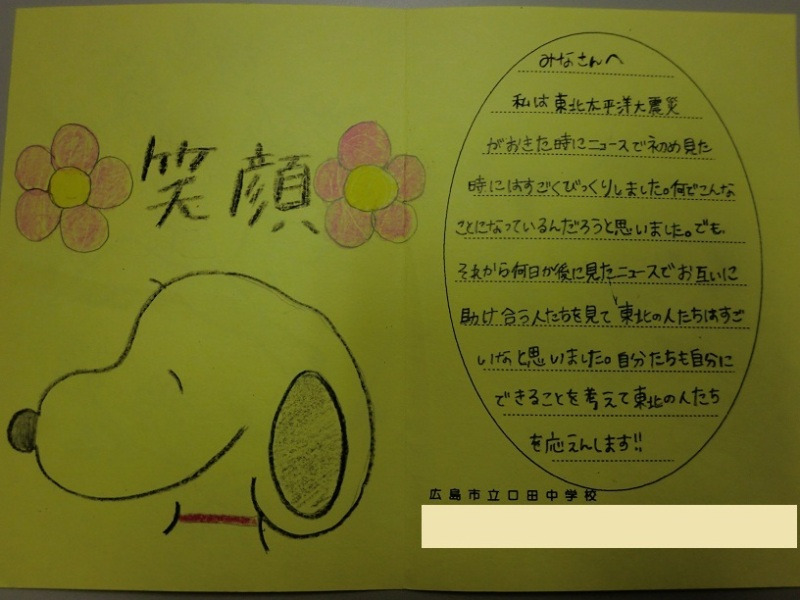 笑顔
みなさんへ
私は東北太平洋大震災
がおきた時にニュースで初め見た
時にはすごくびっくりしました。何でこんな
ことになっているんだろうと思いました。でも、
それから何日か後に見たニュースでお互いに
助け合う人たちを見て、東北の人たちはすご
いなと思いました。自分たちも自分に
できることを考えて東北の人たち
を応えんします!!
広島市立口田中学校